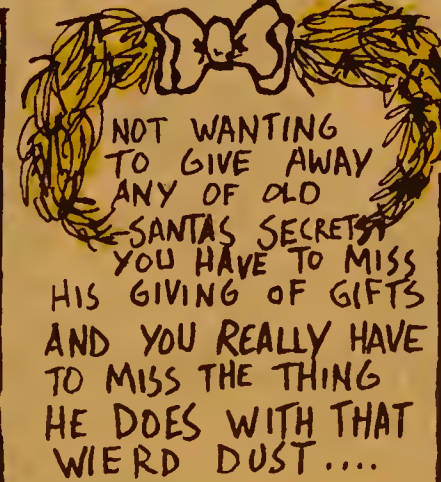 NOT WANTING
TO GIVE AWAY
ANY OF OLD
SANTAS SECRETS
YOU HAVE TO MISS
HIS GIVING OF GIFTS
AND YOU REALLY HAVE
TO MISS THE THING
HE DOES WITH THAT
WIERD DUST....